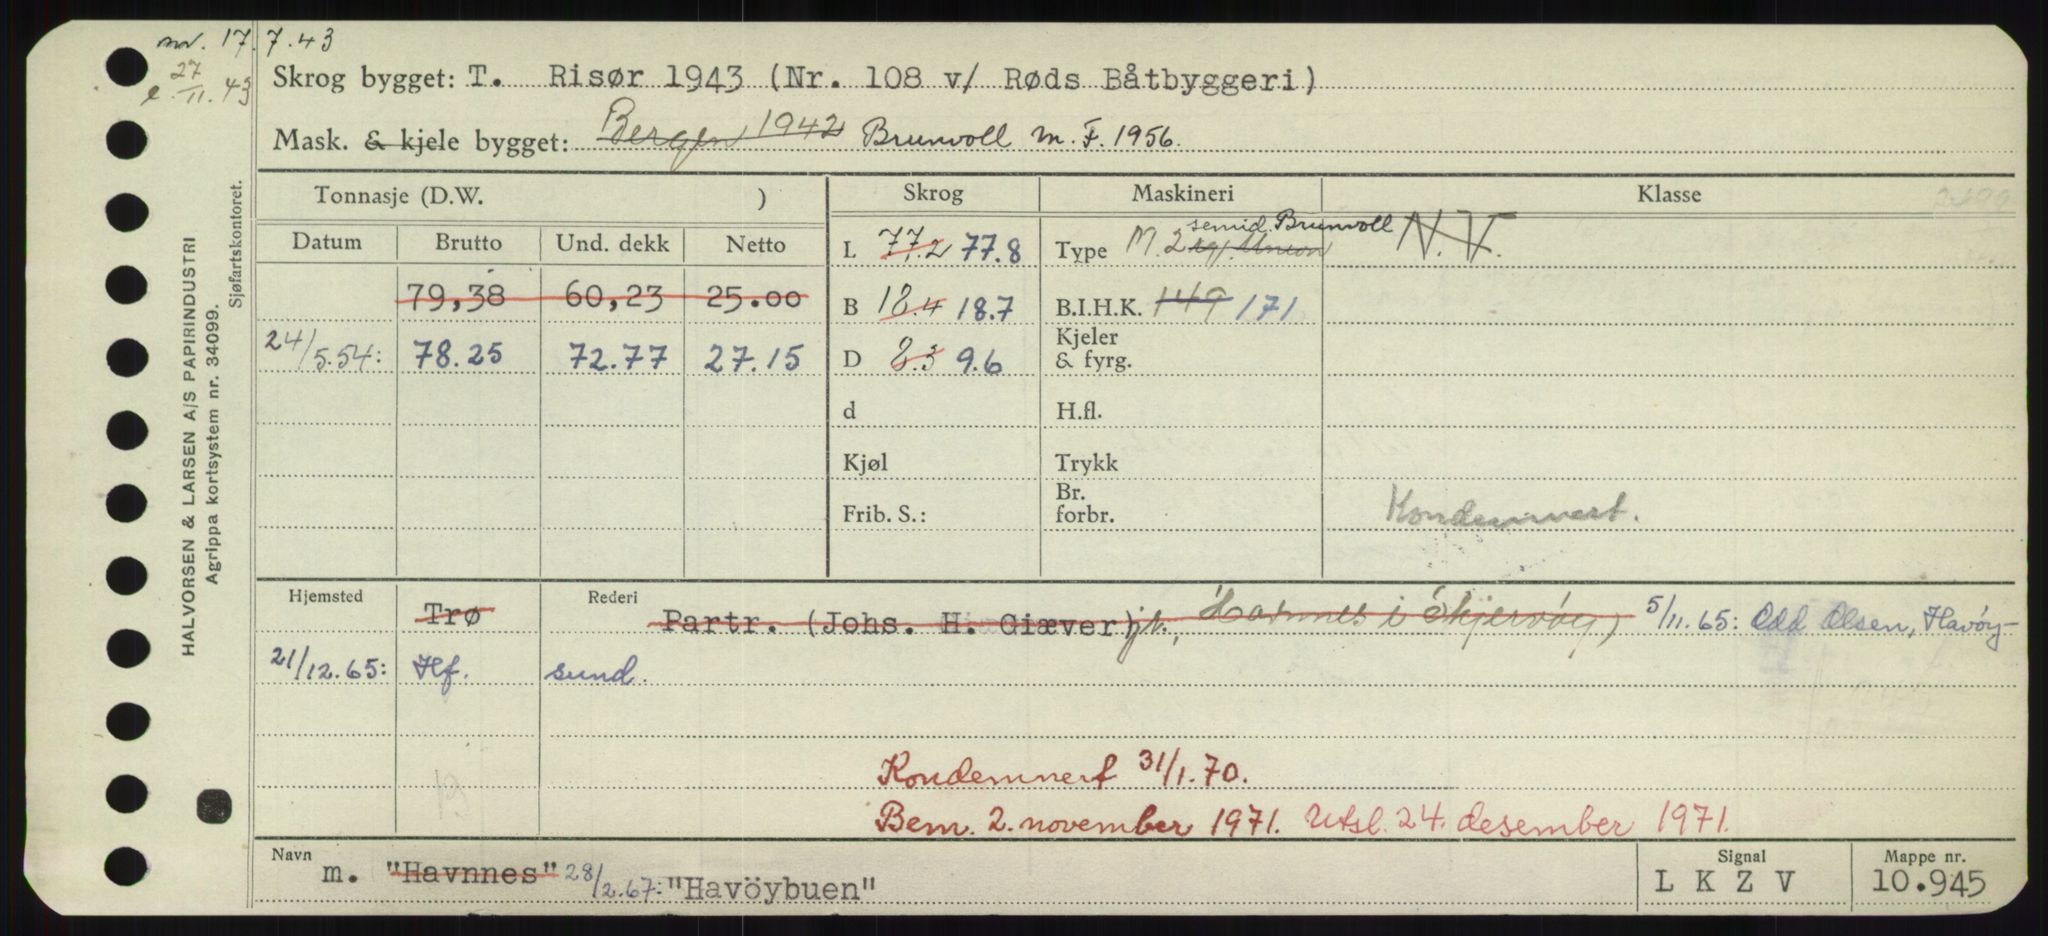 nv. 17.7.43
e. 27/11.43
Skrog bygget: T. Risør 1943 (Nr. 108 v/ Røds Båtbyggeri)
Mask. & kjele bygget: Bergen 1942 Brunvoll M.F. 1956.
HALVORSEN & LARSEN A/S PAPIRINDUSTRI
Agrippa kortsystem nr. 34099.
Sjøfartskontoret.
Tonnasje (D.W. ) Skrog Maskineri Klasse
Datum Brutto Und. dekk Netto
79,38 60,23 25.00
24/5.54: 78.25 72.77 27.15
L 77.2 77.8
B 18.4 18.7
D 8.3 9.6
d
Kjøl
Frib. S.:
semid. Brunvoll
Type M. 2 syl. Union
B.I.H.K. 149 171
Kjeler
& fyrg.
H.fl.
Trykk
Br.
forbr.
N.V.
Kondemnert.
Hjemsted Trø Rederi Partr. (Johs. H. Giæver) jr., Havnnes i Skjervöy) 5/11.65: Odd Olsen, Havöy-
21/12.65: Hf. sund.
Kondemnert 31/1.70.
Bem. 2. november 1971. Utsl. 24. desember 1971.
Navn m. "Havnnes" 28/2.67: "Havöybuen"
Signal LKZV
Mappe nr. 10.945